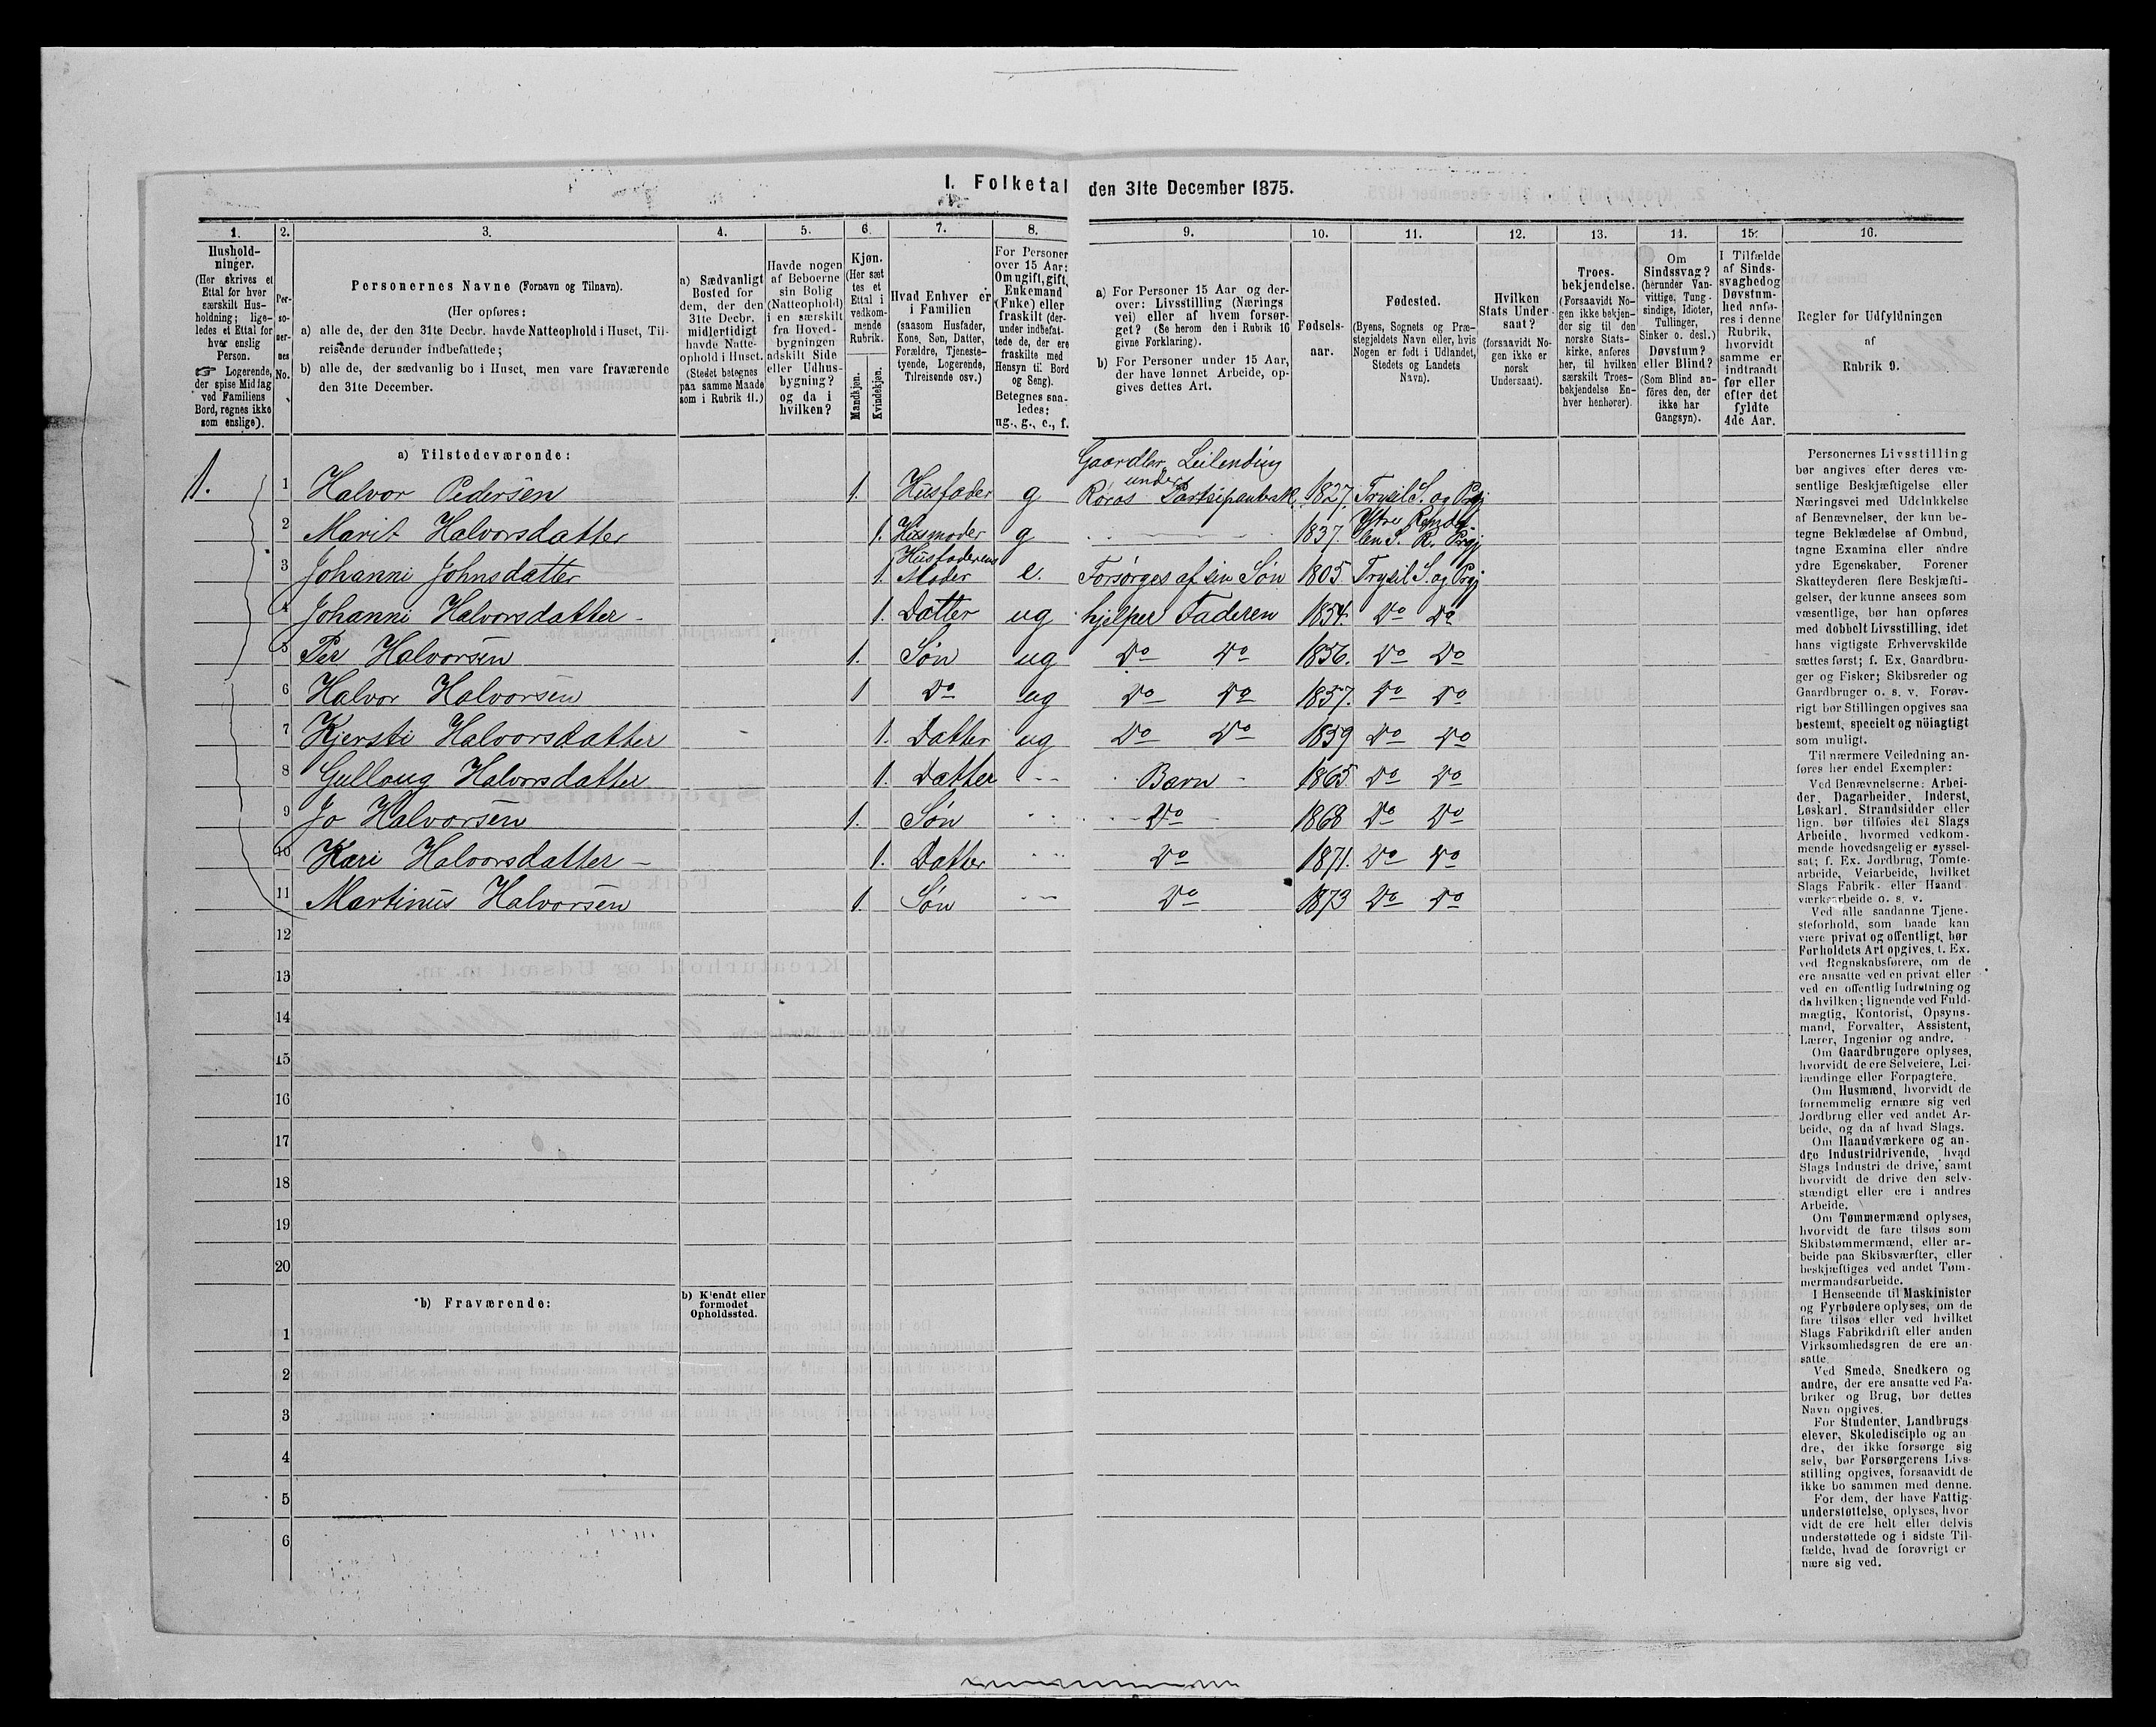 I. Folketal den 31te December 1875.
1. 2. 3. 4. 5. 6. 7. 8. 9. 10. 11. 12. 13. 14. 15. 16.
Hushold-
ninger.
(Her skrives et
Ettal for hver
særskilt Hus-
holdning; lige-
ledes et Ettal for
hver enslig
Person.
☞ Logerende,
der spise Middag
ved Familiens
Bord, regnes ikke
som enslige).
Per-
so-
ner-
nes
No.
Personernes Navne (Fornavn og Tilnavn).
(Her opføres:
a) alle de, der den 31te Decbr. havde Natteophold i Huset, Til-
reisende derunder indbefattede;
b) alle de, der sædvanlig bo i Huset, men vare fraværende
den 31te December.
a) Sædvanligt
Bosted for
dem, der den
31te Decbr.
midlertidigt
havde Natte-
ophold i Huset.
(Stedet betegnes
paa samme Maade
som i Rubrik 11.)
Havde nogen
af Beboerne
sin Bolig
(Natteophold)
i en særskilt
fra Hoved-
bygningen
adskilt Side
eller Udhus-
bygning?
og da i
hvilken?
Kjøn.
(Her sæt
tes et
Ettal i
vedkom-
mende
Rubrik.
Mandkjøn.
Kvindekjøn.
Hvad Enhver er
i Familien
(saasom Husfader,
Kone, Søn, Datter,
Forældre, Tjeneste-
tyende, Logerende,
Tilreisende osv.)
For Personer
over 15 Aar:
Om ugift, gift,
Enkemand
(Enke) eller
fraskilt (der-
under indbefat-
tede de, der ere
fraskilte med
Hensyn til Bord
og Seng).
Betegnes saa-
ledes:
ug., g., e., f.
a) For Personer 15 Aar og der-
over: Livsstilling (Nærings
vei) eller af hvem forsør-
get? (Se herom den i Rubrik 16
givne Forklaring).
b) For Personer under 15 Aar,
der have lønnet Arbeide, op-
gives dettes Art.
Fødsels-
aar.
Fødested.
(Byens, Sognets og Præ-
stegjeldets Navn eller, hvis
Nogen er født i Udlandet,
Stedets og Landets
Navn).
Hvilken
Stats Under
saat?
(forsaavidt No-
gen ikke er
norsk
Undersaat).
Troes-
bekjendelse.
(Forsaavidt No-
gen ikke bekjen-
der sig til den
norske Stats-
kirke, anføres
her, til hvilken
særskilt Troes-
bekjendelse En-
hver henhører).
Om
Sindssvag?
(herunder Van-
vittige, Tung-
sindige, Idioter,
Tullinger,
Sinker o. desl.)
Døvstum?
eller Blind?
(Som Blind an-
føres den, der
ikke har
Gangsyn).
I Tilfælde
af Sinds-
svaghed og
Døvstum-
hed anfø-
res i denne
Rubrik,
hvorvidt
samme er
indtraadt
før eller
efter det
fyldte
4de Aar.
Regler for Udfyldningen
af
Rubrik 9.
a) Tilstedeværende:
Gaardbr. Leilending
under
1. 1 Halvor Pedersen 1. Husfader g Røros Partsipantsk. 1827. Trysil S. og Prgj
2 Marit Halvorsdatter 1. Husmoder g 1837. Ytre Rendalen S. R. Prgj
3 Johanni Johnsdatter 1. Husfaderens Moder e. Forsørges af sin Søn 1805 Trysil S. og Prgj
4 Johanni Halvorsdatter 1. Datter ug hjelper Faderen 1854. Do Do
5 Per Halvorsen 1. Søn ug Do Do 1856. Do Do
6 Halvor Halvorsen 1 Do ug Do Do 1857. Do Do
7 Kjersti Halvorsdatter 1. Datter ug Do Do 1859 Do Do
8 Gulloug Halvorsdatter 1. Datter Barn 1865 Do Do
9 Jo Halvorsen 1. Søn Do 1868 Do Do
10 Kari Halvorsdatter 1. Datter Do 1871. Do Do
11 Martinus Halvorsen 1. Søn Do 1873 Do Do
12
13
14
15
16
17
18
19
20
b) Fraværende:
b) Kjendt eller
formodet
Opholdssted.
1
2
3
4
5
6
Personernes Livsstilling
bør angives efter deres væ-
sentlige Beskjæftigelse eller
Næringsvei med Udelukkelse
af Benævnelser, der kun be-
tegne Beklædelse af Ombud,
tagne Examina eller andre
ydre Egenskaber. Forener
Skatteyderen flere Beskjæfti-
gelser, der kunne ansees som
væsentlige, bør han opføres
med dobbelt Livsstilling, idet
hans vigtigste Erhvervskilde
sættes først; f. Ex. Gaardbru-
ger og Fisker; Skibsreder og
Gaardbruger o. s. v. Forøv-
rigt bør Stillingen opgives saa
bestemt, specielt og nöiagtigt
som muligt.
Til nærmere Veiledning an-
føres her endel Exempler:
Ved Benævnelserne: Arbei-
der, Dagarbeider, Inderst,
Løskarl, Strandsidder eller
lign. bør tilføies det Slags
Arbeide, hvormed vedkom-
mende hovedsagelig er syssel-
sat; f. Ex. Jordbrug, Tømte-
arbeide, Veiarbeide, hvilket
Slags Fabrik- eller Haand
værksarbeide o. s. v.
Ved alle saadanne Tjene-
steforhold, som baade kan
være privat og offentligt, bør
Forholdets Art opgives, f. Ex.
ved Regnskabsførere, om de
ere ansatte ved en privat eller
ved en offentlig Indretning og
da hvilken; lignende ved Fuld-
mægtig, Kontorist, Opsyns-
mand, Forvalter, Assistent,
Lærer, Ingeniør og andre.
Om Gaardbrugere oplyses,
hvorvidt de ere Selveiere, Lei-
lændinge eller Forpagtere.
Om Husmænd, hvorvidt de
fornemmelig ernære sig ved
Jordbrug eller ved andet Ar-
beide, og da af hvad Slags.
Om Haandværkere og an-
dre Industridrivende, hvad
Slags Industri de drive, samt
hvorvidt de drive den selv-
stændigt eller ere i andres
Arbeide.
Om Tømmermænd oplyses,
hvorvidt de fare tilsøs som
Skibstømmermænd, eller ar-
beide paa Skibsværfter, eller
beskjæftiges ved andet Tøm-
mermandsarbeide.
I Henseende til Maskinister
og Fyrbødere oplyses, om de
fare tilsøs eller ved hvilket
Slags Fabrikdrift eller anden
Virksomhedsgren de ere an-
satte.
Ved Smede, Snedkere og
andre, der ere ansatte ved Fa-
briker og Brug, bør dettes
Navn opgives.
For Studenter, Landbrugs
elever, Skoledisciple og an
dre, der ikke forsørge sig
selv, bør Forsørgerens Livs-
stilling opgives, forsaavidt de
ikke bo sammen med denne.
For dem, der have Fattig-
understøttelse, oplyses, hvor
vidt de ere helt eller delvis
understøttede og i sidste Til-
fælde, hvad de forøvrigt er
nære sig ved.